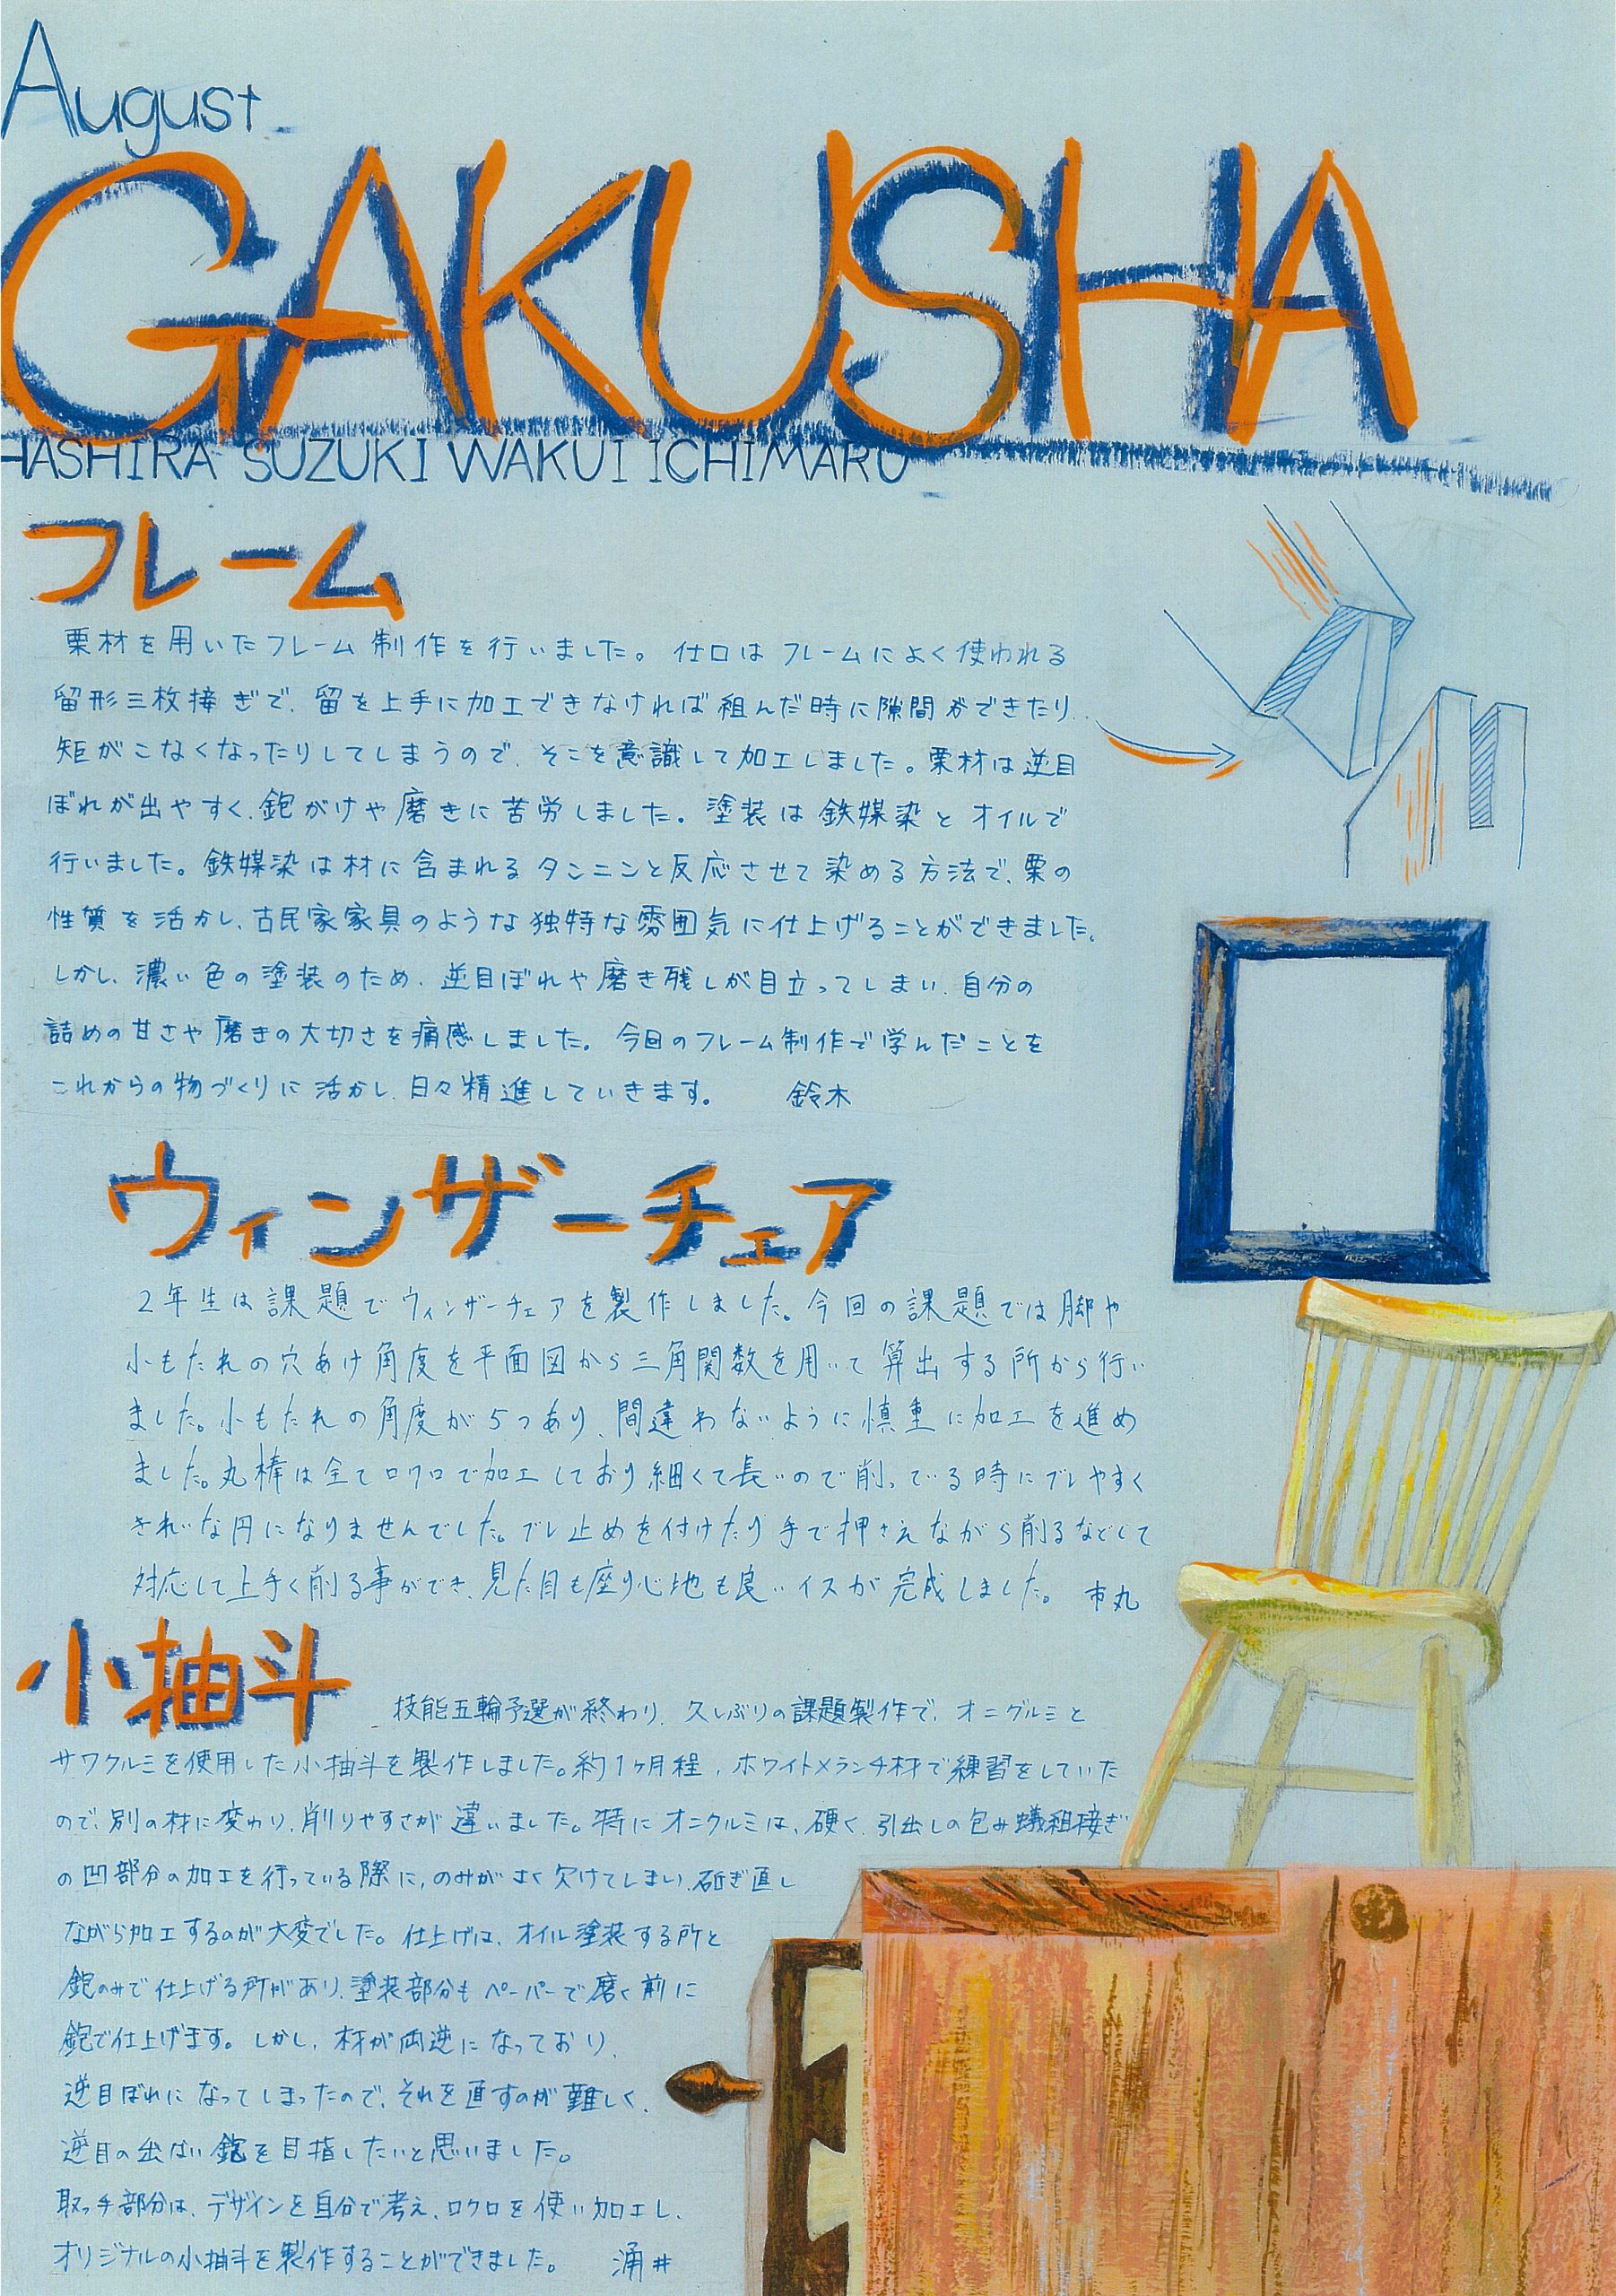 August
GAKUSHA
HASHIRA SUZUKI WAKUI ICHIMARU
フレーム
栗材を用いたフレーム制作を行いました。仕口はフレームによく使われる
留形三枚接ぎで、留を上手に加工できなければ組んだ時に隙間ができたり、
矩がこなくなったりしてしまうので、そこを意識して加工しました。栗材は逆目
ぼれが出やすく、鉋がけや磨きに苦労しました。塗装は鉄媒染とオイルで
行いました。鉄媒染は材に含まれるタンニンと反応させて染める方法で、栗の
性質を活かし、古民家家具のような独特な雰囲気に仕上げることができました。
しかし、濃い色の塗装のため、逆目ぼれや磨き残しが目立ってしまい、自分の
詰めの甘さや磨きの大切さを痛感しました。今回のフレーム制作で学んだことを
これからの物づくりに活かし、日々精進していきます。 鈴木
ウィンザーチェア
2年生は課題でウィンザーチェアを製作しました。今回の課題では脚や
小もたれの穴あけ角度を平面図から三角関数を用いて算出する所から行い
ました。小もたれの角度が5つあり、間違わないように慎重に加工を進め
ました。丸棒は全てロクロで加工しており細くて長いので削っている時にブレやすく
きれいな円になりませんでした。ブレ止めを付けたり手で押さえながら削るなどして
対応して上手く削る事ができ、見た目も座り心地も良いイスが完成しました。 市丸
小抽斗
技能五輪予選が終わり、久しぶりの課題製作で、オニグルミと
サワクルミを使用した小抽斗を製作しました。約1ヶ月程、ホワイトメランチ材で練習をしていた
ので、別の材に変わり、削りやすさが違いました。特にオニクルミは、硬く、引出しの包み蟻組接ぎ
の凹部分の加工を行っている際に、のみがよく欠けてしまい、砥ぎ直し
ながら加工するのが大変でした。仕上げは、オイル塗装する所と
鉋のみで仕上げる所があり、塗装部分もペーパーで磨く前に
鉋で仕上げます。しかし、材が両逆になっており、
逆目ぼれになってしまったので、それを直すのが難しく、
逆目の出ない鉋を目指したいと思いました。
取っ手部分は、デザインを自分で考え、ロクロを使い加工し、
オリジナルの小抽斗を製作することができました。 涌井